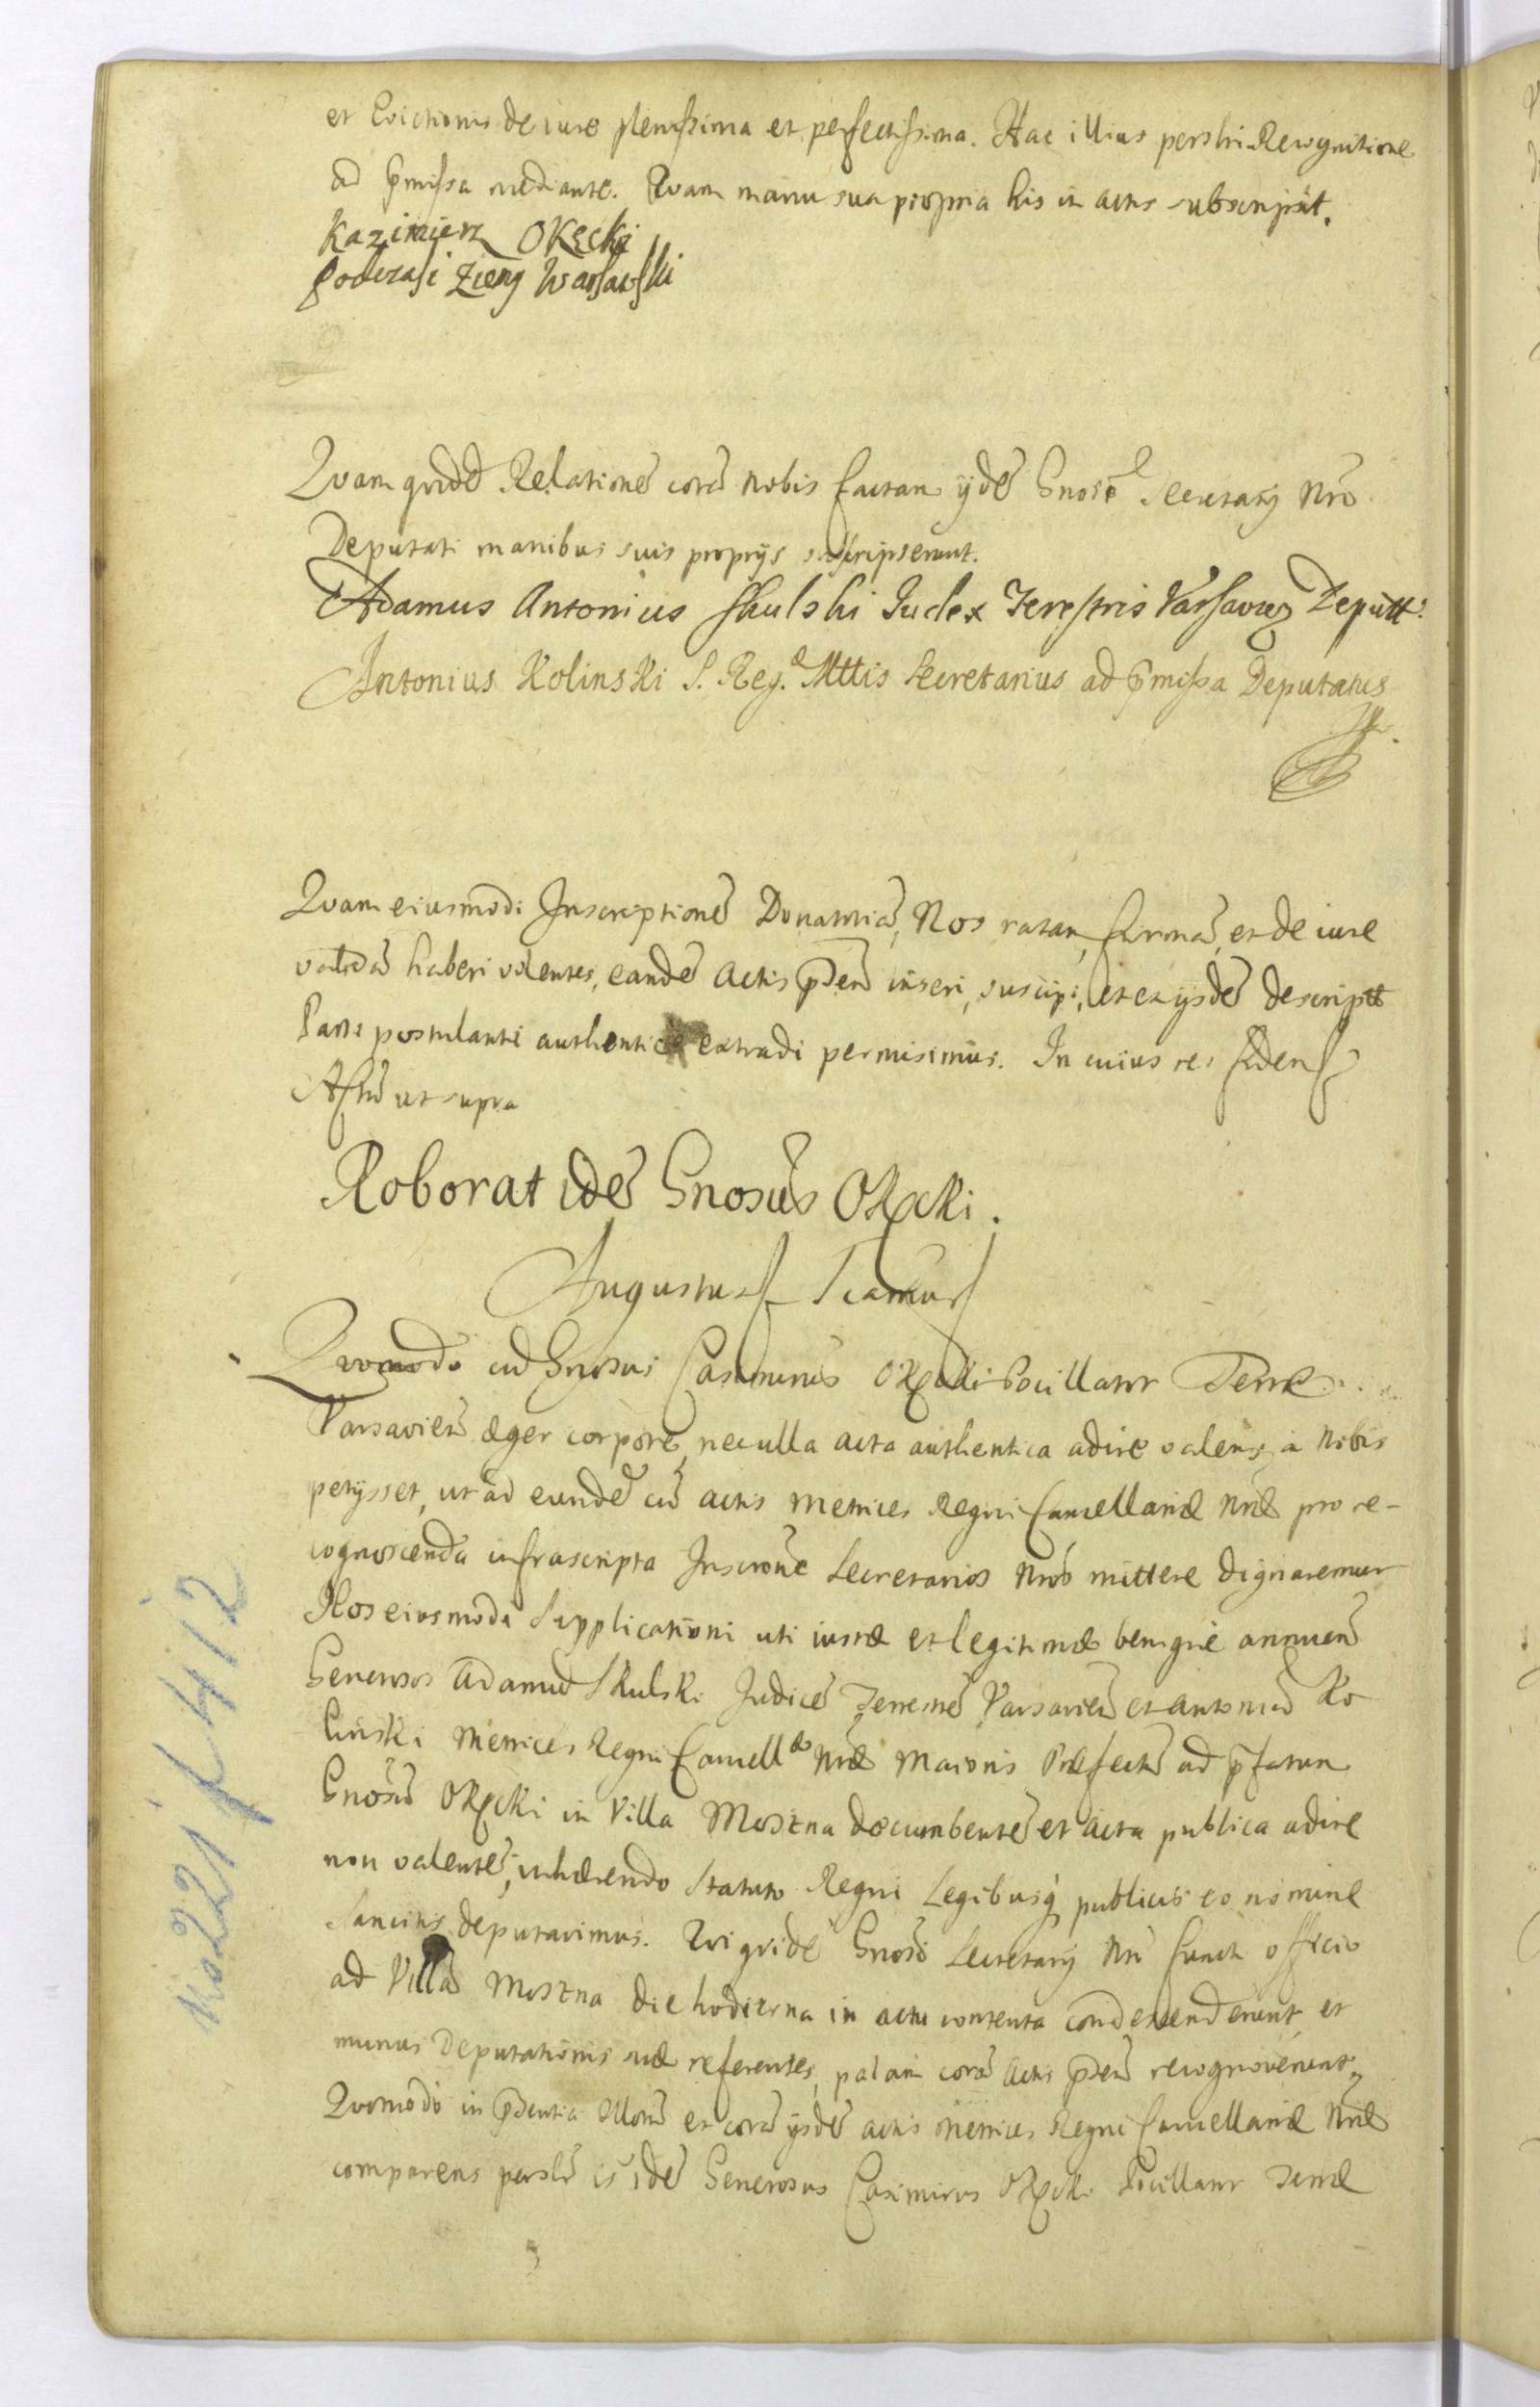 et Evictionis de iure plenissima et perfectissima. Hac illius persłri Recognitione
ad p̄missa mediante. Quam manu sua propria his in actis subscripsit.
Kazimierz Okęcki
Podczasi Ziemy Warsawski
Quam quidē Relationē corā nobis factam ijdē Gnosi Secretarij Nrī
Deputati manibus suis proprijs subscripserunt.
Adamus Antonius Skulski Iudex Terestris Varsavien Deputt.
Antonius Kolinski S. Reg. Mttis Secretarius ad p̄missa Deputatus
Quam eiusmodi Inscriptionē Donatoriā, Nos ratam, firmā, et de iure
validā haberi volentes, eandē Actis p̄den inseri, suscipi, et ex ijsdē descriptt
Parti postulanti authenticē extradi permisimus. In cuius rei fidem
Actū ut supra
Roborat idē Gnosus Okęcki.
Augustus
Quomodo cū Gnosus Casimirus Okęcki Pocillator Terræ
Varsavień æger corpore, nec ulla acta authentica adire valens, a nobis
petijsset, ut ad eundē cū actis Metrices Regni Cancellariæ Nræ pro re-
cognoscenda infrascripta Inscrōne Secretarios Nrōs mittere dignaremur
Nos eiusmodi Supplicationi uti iustæ et legitimæ benigne annuen
Generosos Adamū Skulski Judicē Terrestrē Varsavień et Antoniū Ko
linski Metrices Regni Cancell. Nræ Maioris Præfectū ad p̄fatum
Gnosū Okęcki in Villa Moszna decumbentē et acta publica adire
non valentē, inhærendo Statuto Regni Legibusq publicis eo nomine
sancitis deputavimus. Qui quidē Gnosi Secretarij Nrī functi officio
ad Villā Moszna die hodierna in actu contenta condescenderunt, et
munus deputationis suæ referentes, palam corā Actis p̄den recognoverunt.
Quomodo in p̄dentia illorū et corā ijsdē actis Metrices Regni Cancellariæ Nræ
comparens persłr is idē Generosus Casimirus Okęcki Pocillator Terræ
Ko 221 f 412